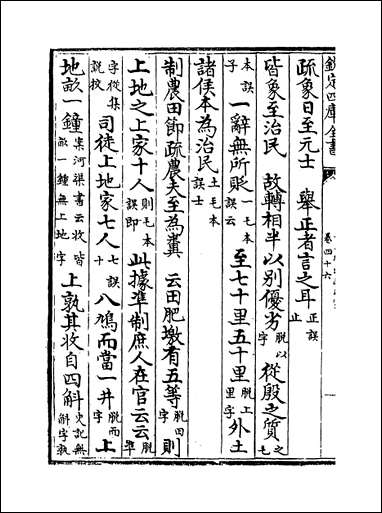 欽定四庫全書 卷四十六 一
疏象日至元士 舉正者言之耳 正誤止
皆象至治民 故轉相半以別優劣 脱以字 從殷之質 之毛
本誤子 一辭無所貶 一毛本誤云 至七十里五十里 脱上里字 外土
諸侯本為治民 土毛本誤士
制農田節疏農夫至為糞 云田肥墩有五等 脱田字 則
上地之上家十人 則毛本誤即 此據準制庶人在官云云 脱準
字從集說校 司徒上地家七人 七誤十 八鳩而當一井 脱而字 上
地畝一鐘 案河渠書云收皆畝一鐘無上地字 上孰其收自四斛 史記無斛字孰